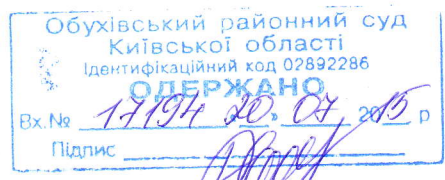 Обухівський районний суд
Київської області
Ідентифікаційний код 02892286
ОДЕРЖАНО
Вх.№ 17194 20 » 07 2015 р
Підпис